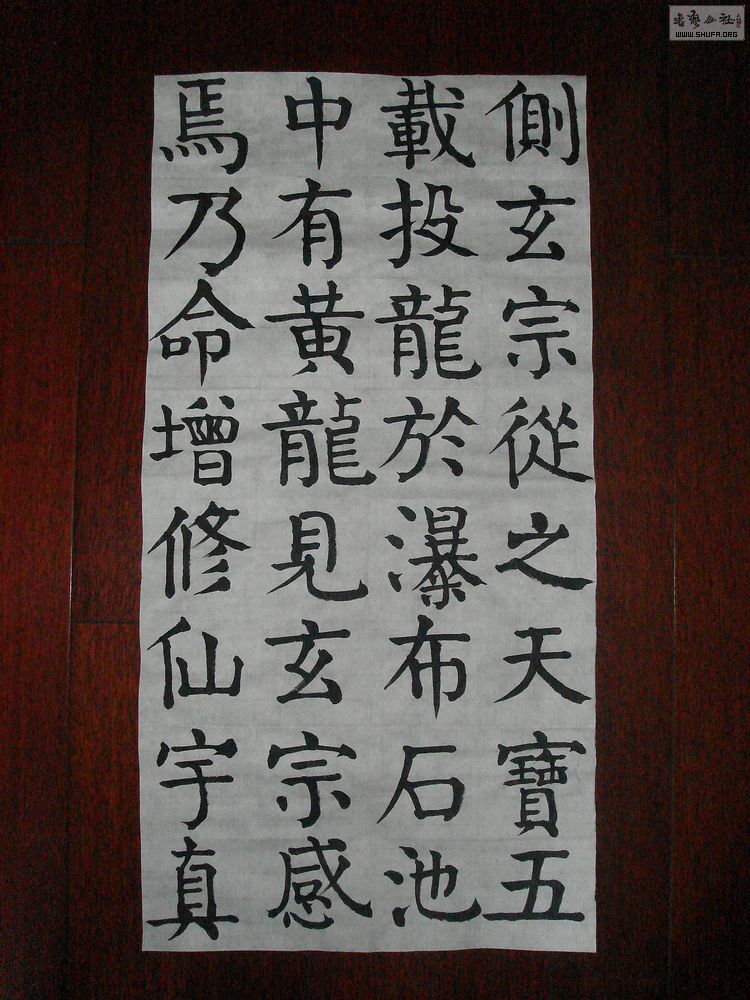 側玄宗從之天寶五
載投龍於瀑布石池
中有黃龍見玄宗感
焉乃命增修仙宇真
WWW.SHUFA.ORG